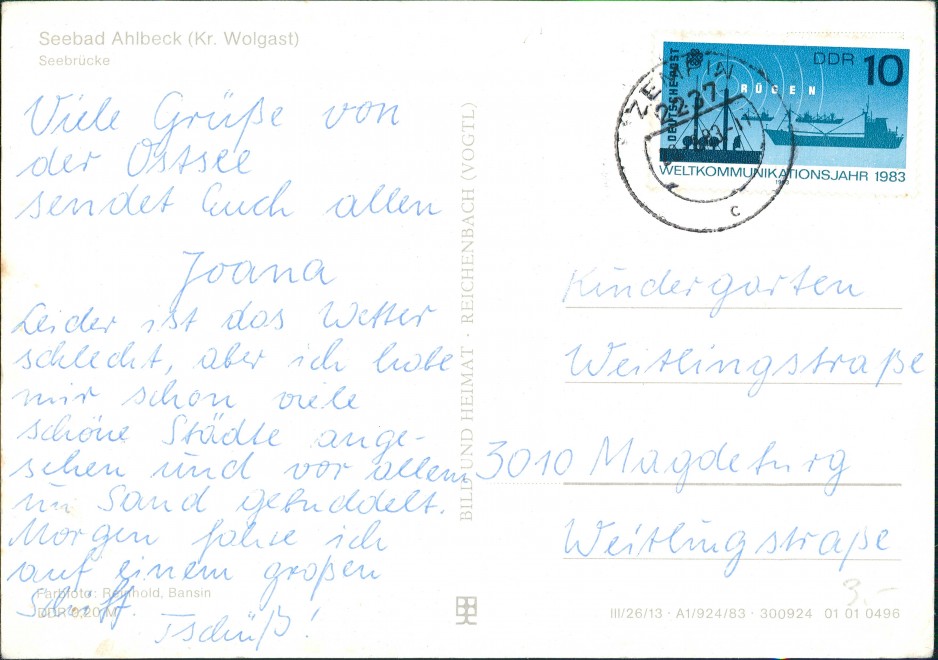 Seebad Ahlbeck (Kr. Wolgast)
Seebrücke
Viele Grüße von
der Ostsee
sendet Euch allen
Joana
Leider ist das Wetter
schlecht, aber ich habe
mir schon viele
schöne Städte ange-
sehen und vor allem
im Sand gebuddelt.
Morgen fahre ich
auf einem großen
Schiff.
Tschüß!
Farbfoto: Reinhold, Bansin
DDR 0,20 M
BILD UND HEIMAT · REICHENBACH (VOGTL)
DEUTSCHE POST
DDR 10
RÜGEN
WELTKOMMUNIKATIONSJAHR 1983
1983
ZEMPIN
2237
83
c
Kindergarten
Weitlingstraße
3010 Magdeburg
Weitlingstraße
3.-
III/26/13 · A1/924/83 · 300924 01 01 0496